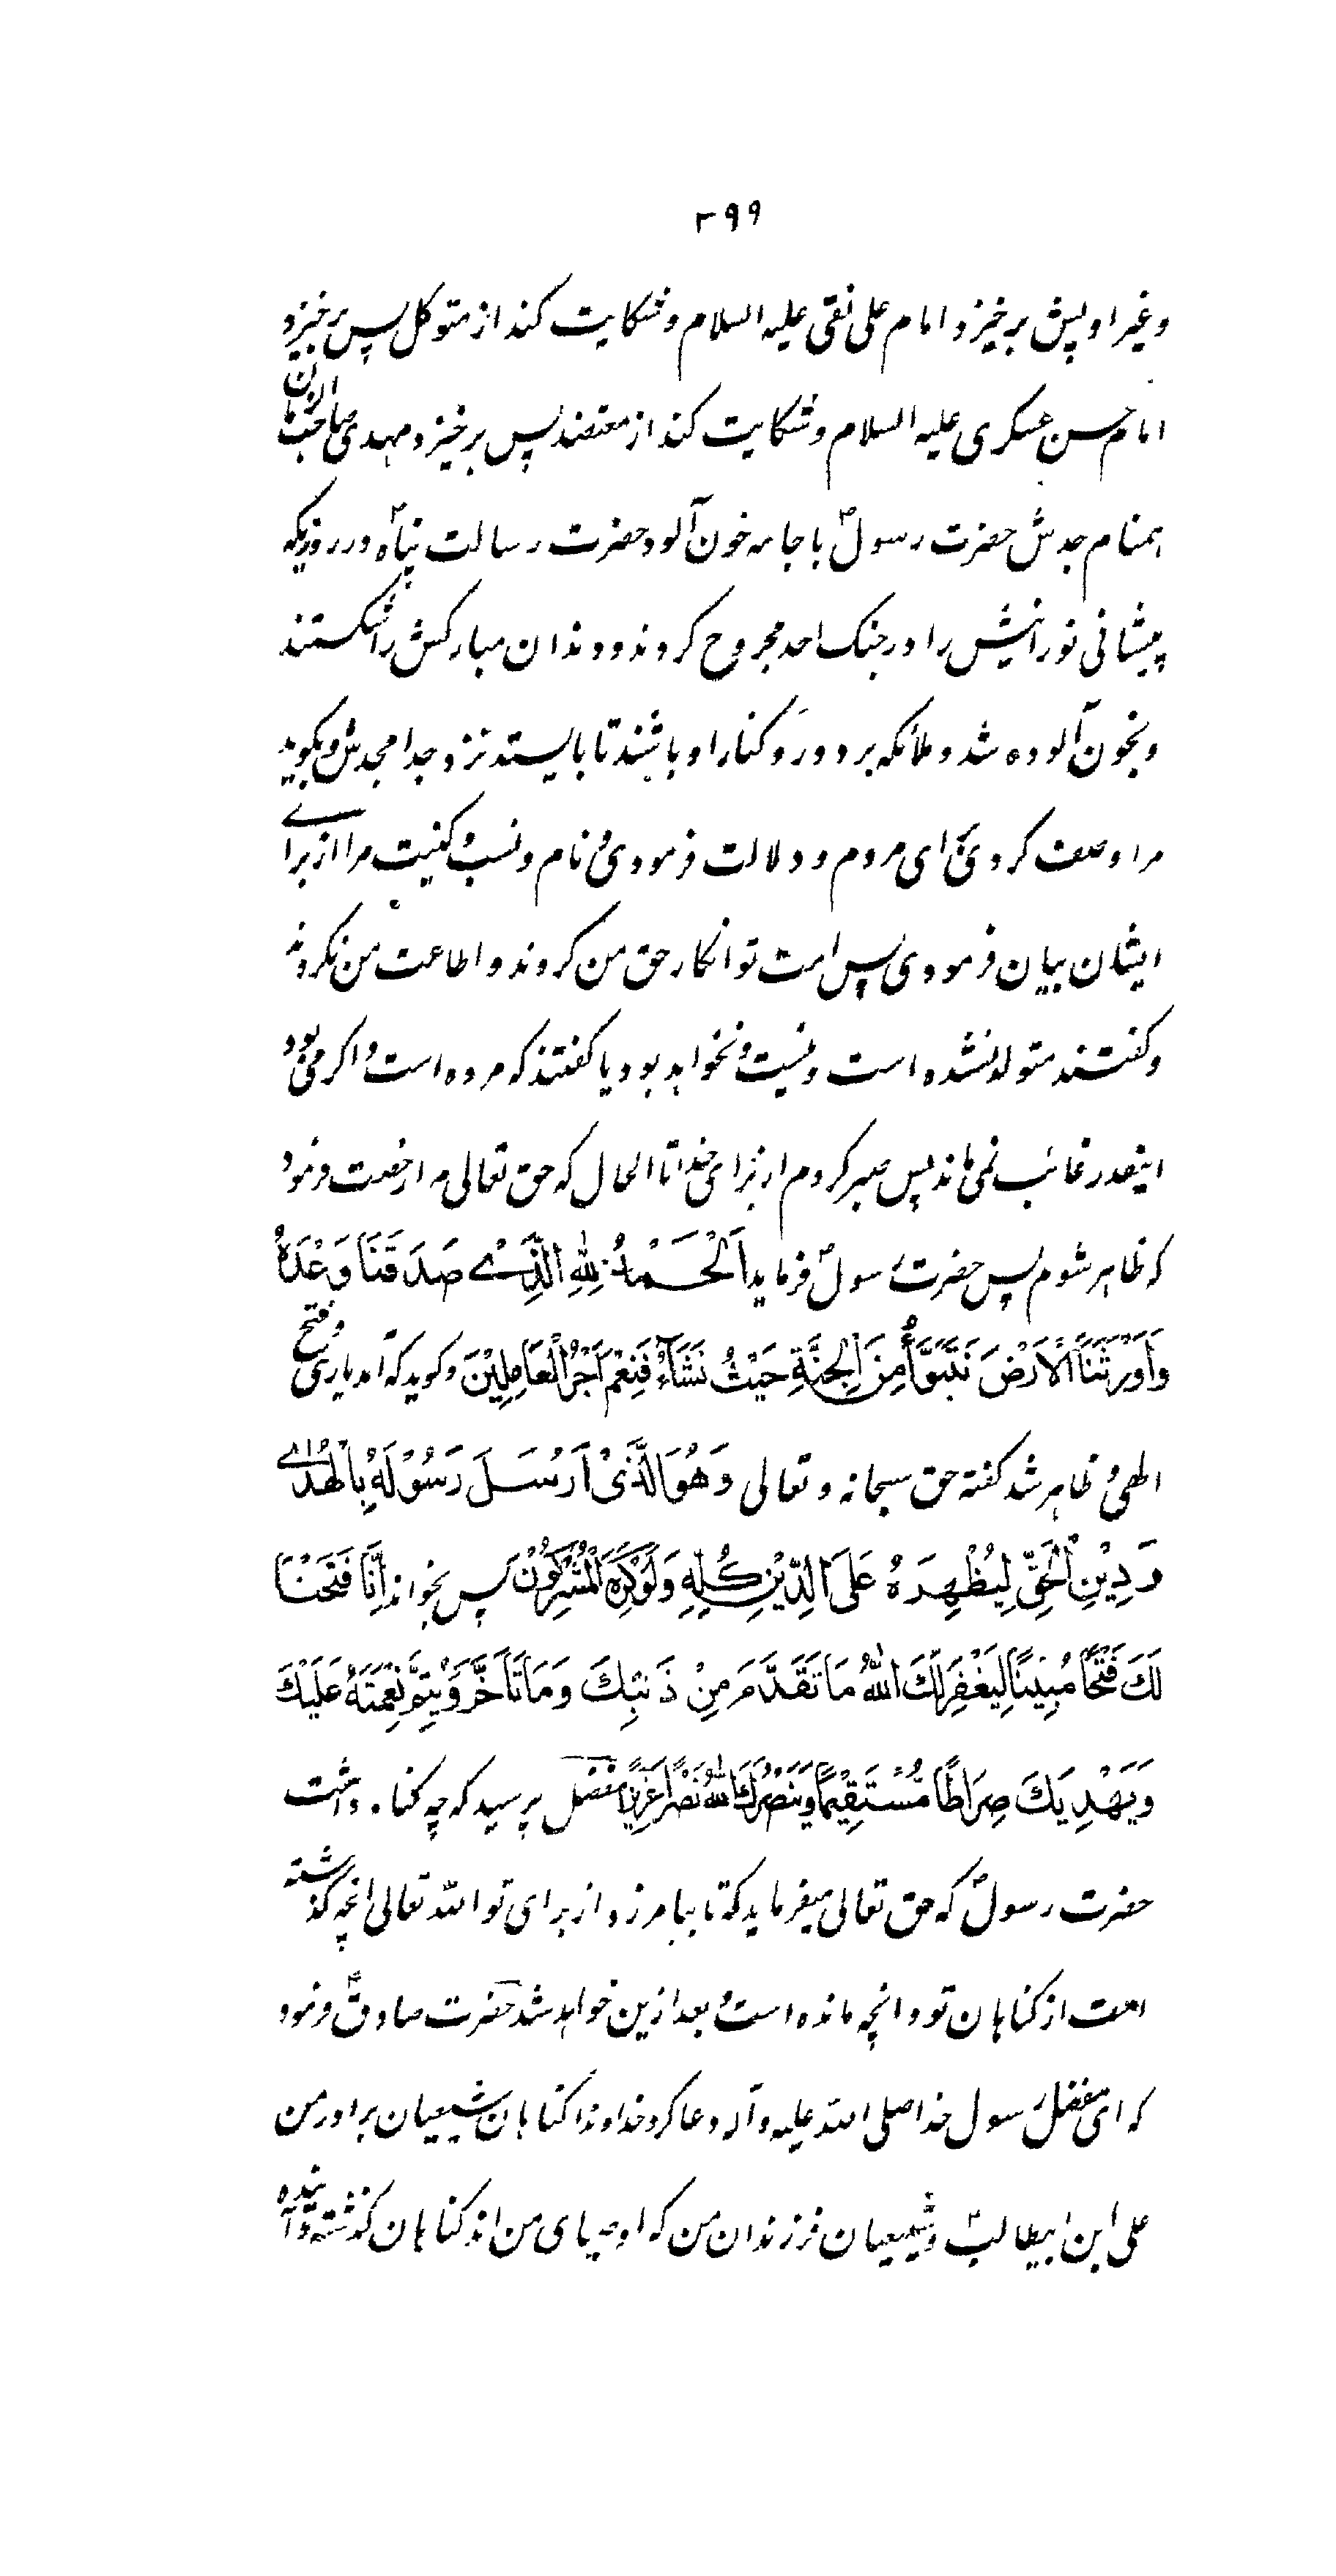 ۲۹۹
و غیر او پیش برخیزد امام علی نقی علیه السلام و شکایت کند از متوکل پس برخیزد
امام حسن عسکری علیه السلام و شکایت کند از معتضد پس برخیزد مهدی صاحب الزمان
همنام جدش حضرت رسولؐ با جامه خون آلود حضرت رسالت پناهؐ در روزیکه
پیشانی نورانیش را در جنک احد مجروح کردند و دندان مبارکش را شکستند
و بخون آلوده شد و ملائکه بر دور و کنار او باشند تا بایستد نزد جد امجدش و بکوید
مرا وصف کردی ای مردم و دلالت فرمودی و نام و نسب و کنیت مرا از برای
ایشان بیان فرمودی پس امت تو انکار حق من کردند و اطاعت من نکردند
و کفتند متولد نشده است و نیست و نخواهد بود یا کفتند که مرده است و اکر می بود
اینقدر غائب نمی ماند پس صبر کردم از برای خدا تا الحال که حق تعالی مرا رخصت فرمود
که ظاهر شوم پس حضرت رسولؐ فرماید اَلْحَمْدُ لِلّٰهِ الَّذِیْ صَدَقَنَا وَعْدَهُ
وَاَوْرَثَنَا الْاَرْضَ نَتَبَوَّأُ مِنَ الْجَنَّةِ حَیْثُ نَشَآءُ فَنِعْمَ اَجْرُ الْعَامِلِیْنَ و کوید که آمد یاری و فتح
الهی و ظاهر شد کفته حق سبحانه و تعالی وَهُوَ الَّذِیْ اَرْسَلَ رَسُوْلَهُ بِالْهُدٰی
وَدِیْنِ الْحَقِّ لِیُظْهِرَهُ عَلَی الدِّیْنِ کُلِّهِ وَلَوْ کَرِهَ الْمُشْرِکُوْنَ پس بخواند اِنَّا فَتَحْنَا
لَكَ فَتْحًا مُبِیْنًا لِیَغْفِرَ لَكَ اللّٰهُ مَا تَقَدَّمَ مِنْ ذَنْبِكَ وَمَا تَاَخَّرَ وَیُتِمَّ نِعْمَتَهُ عَلَیْكَ
وَیَهْدِیَكَ صِرَاطًا مُّسْتَقِیْمًا وَیَنْصُرَكَ اللّٰهُ نَصْرًا عَزِیْزًا مفضل پرسید که چه کناه داشت
حضرت رسولؐ که حق تعالی میفرماید که تا بیامرزد از برای تو الله تعالی انچه کذشته
است از کناهان تو و انچه مانده است و بعد ازین خواهد شد حضرت صادقؑ فرمود
که ای مفضل رسول خدا صلی الله علیه و آله دعا کرد خداوندا کناهان شیعیان برادر من
علی ابن ابیطالبؑ و شیعیان فرزندان من که اوصیای من اند کناهان کذشته و آینده